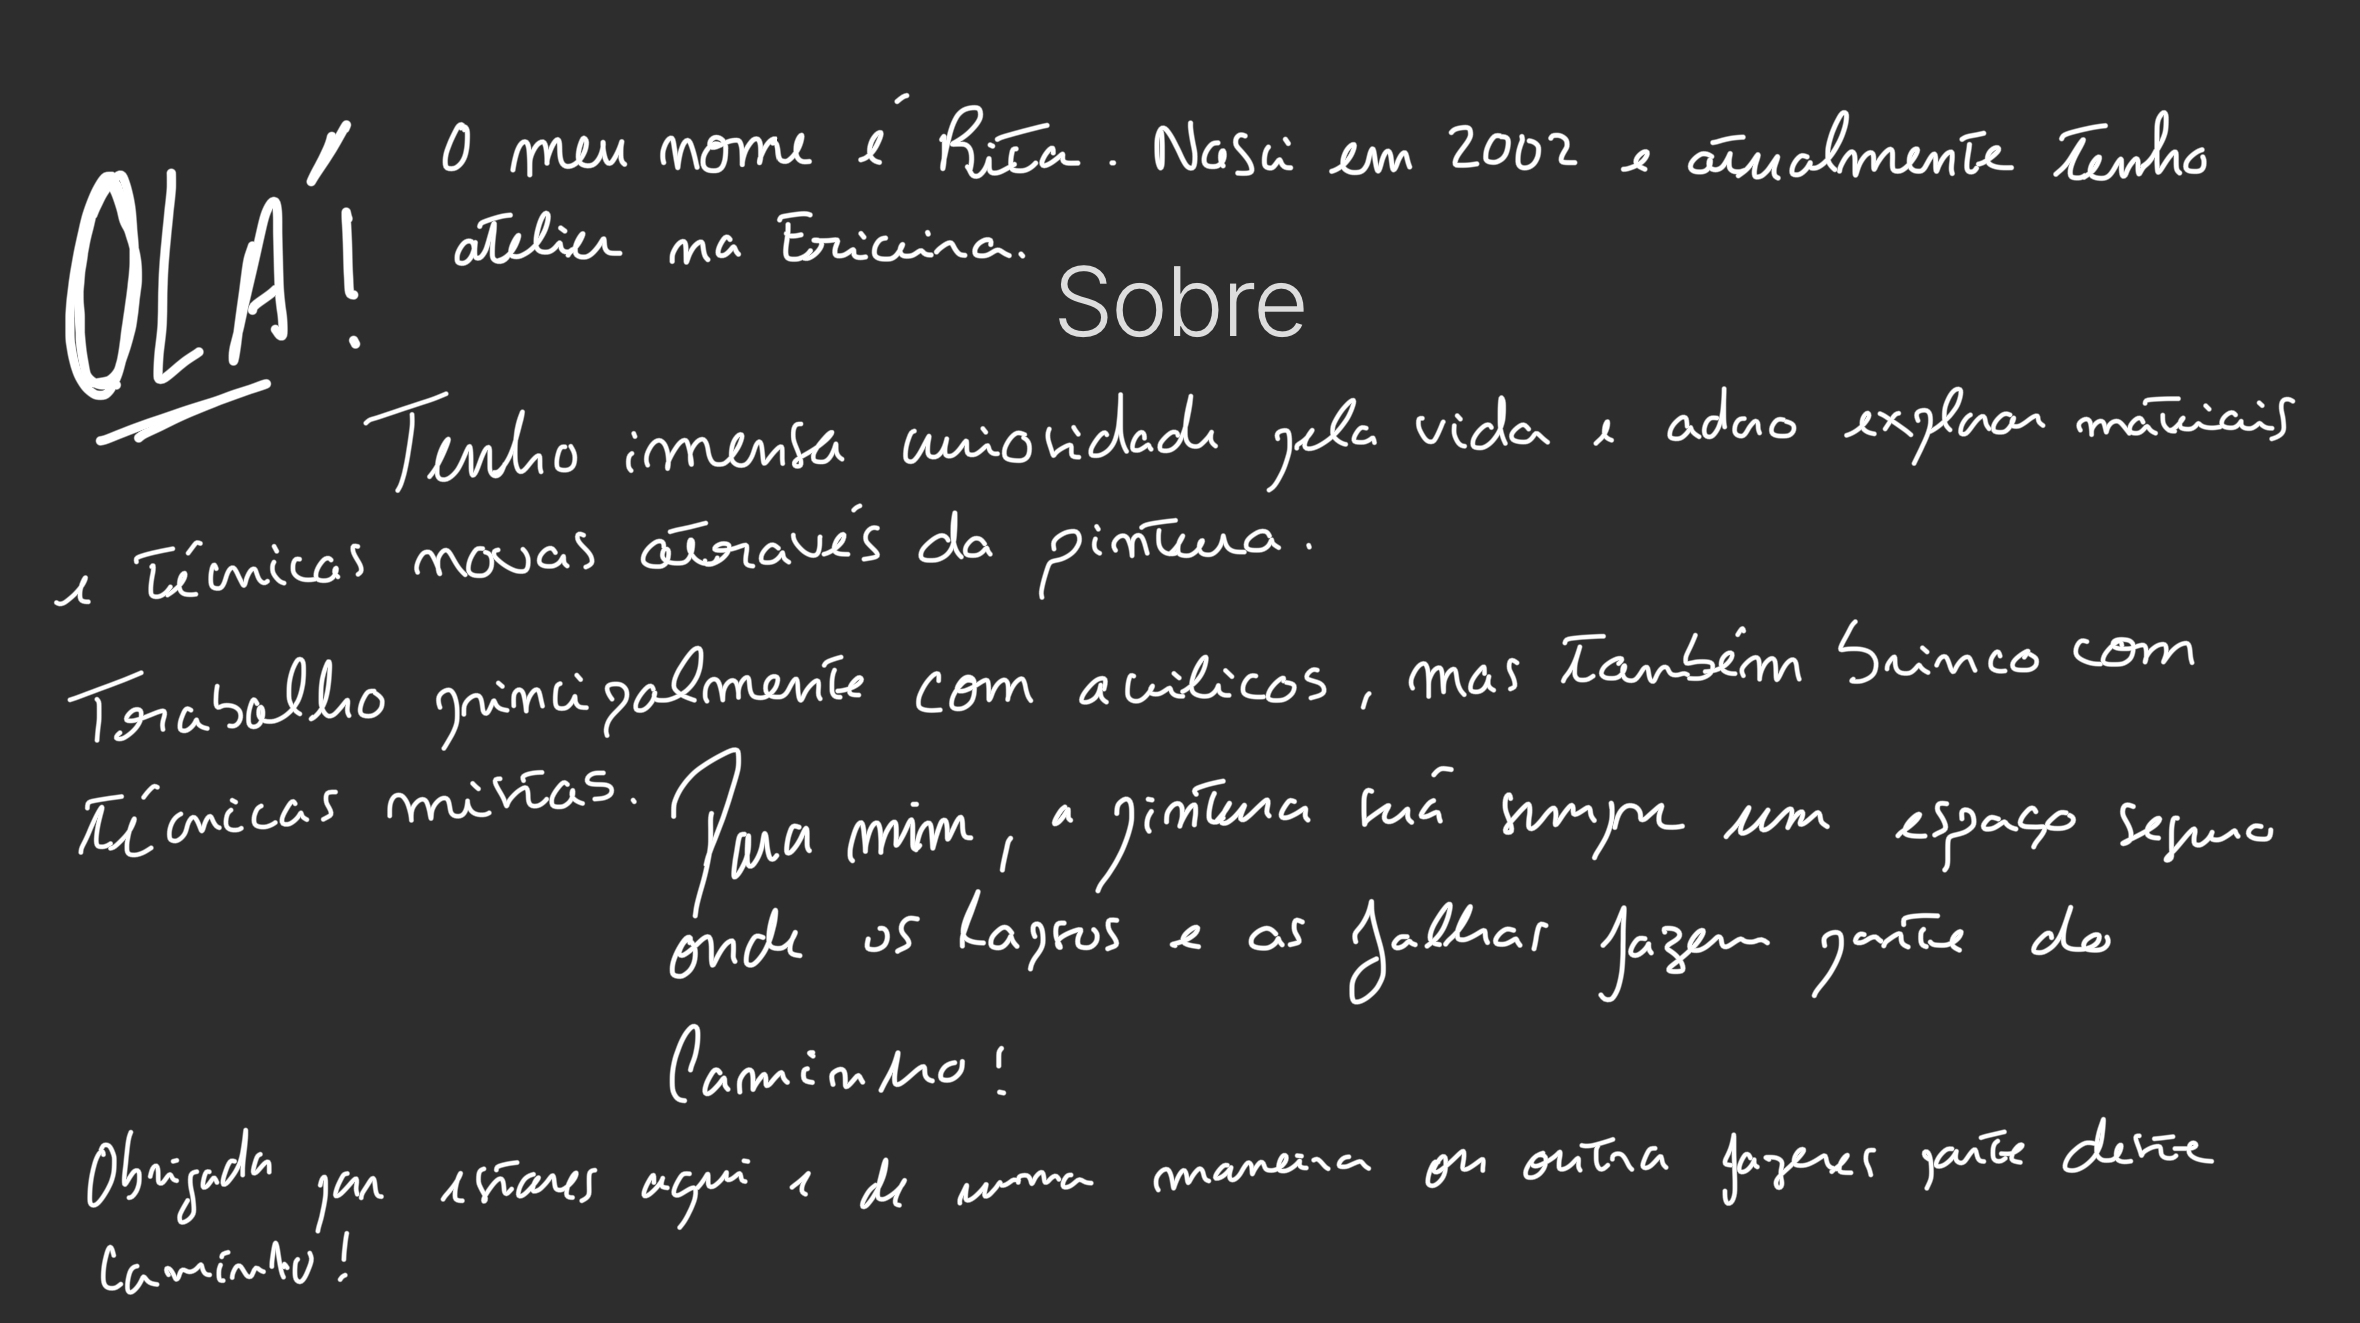 OLÁ!
O meu nome é Rita. Nasci em 2002 e atualmente tenho
atelier na Ericeira.
Sobre
Tenho imensa curiosidade pela vida e adoro explorar materiais
e técnicas novas através da pintura.
Trabalho principalmente com acrílicos, mas também brinco com
técnicas mistas. Para mim, a pintura será sempre um espaço seguro
onde os lapsos e as falhas fazem parte do
Caminho!
Obrigada por estares aqui e de uma maneira ou outra fazeres parte deste
Caminho!